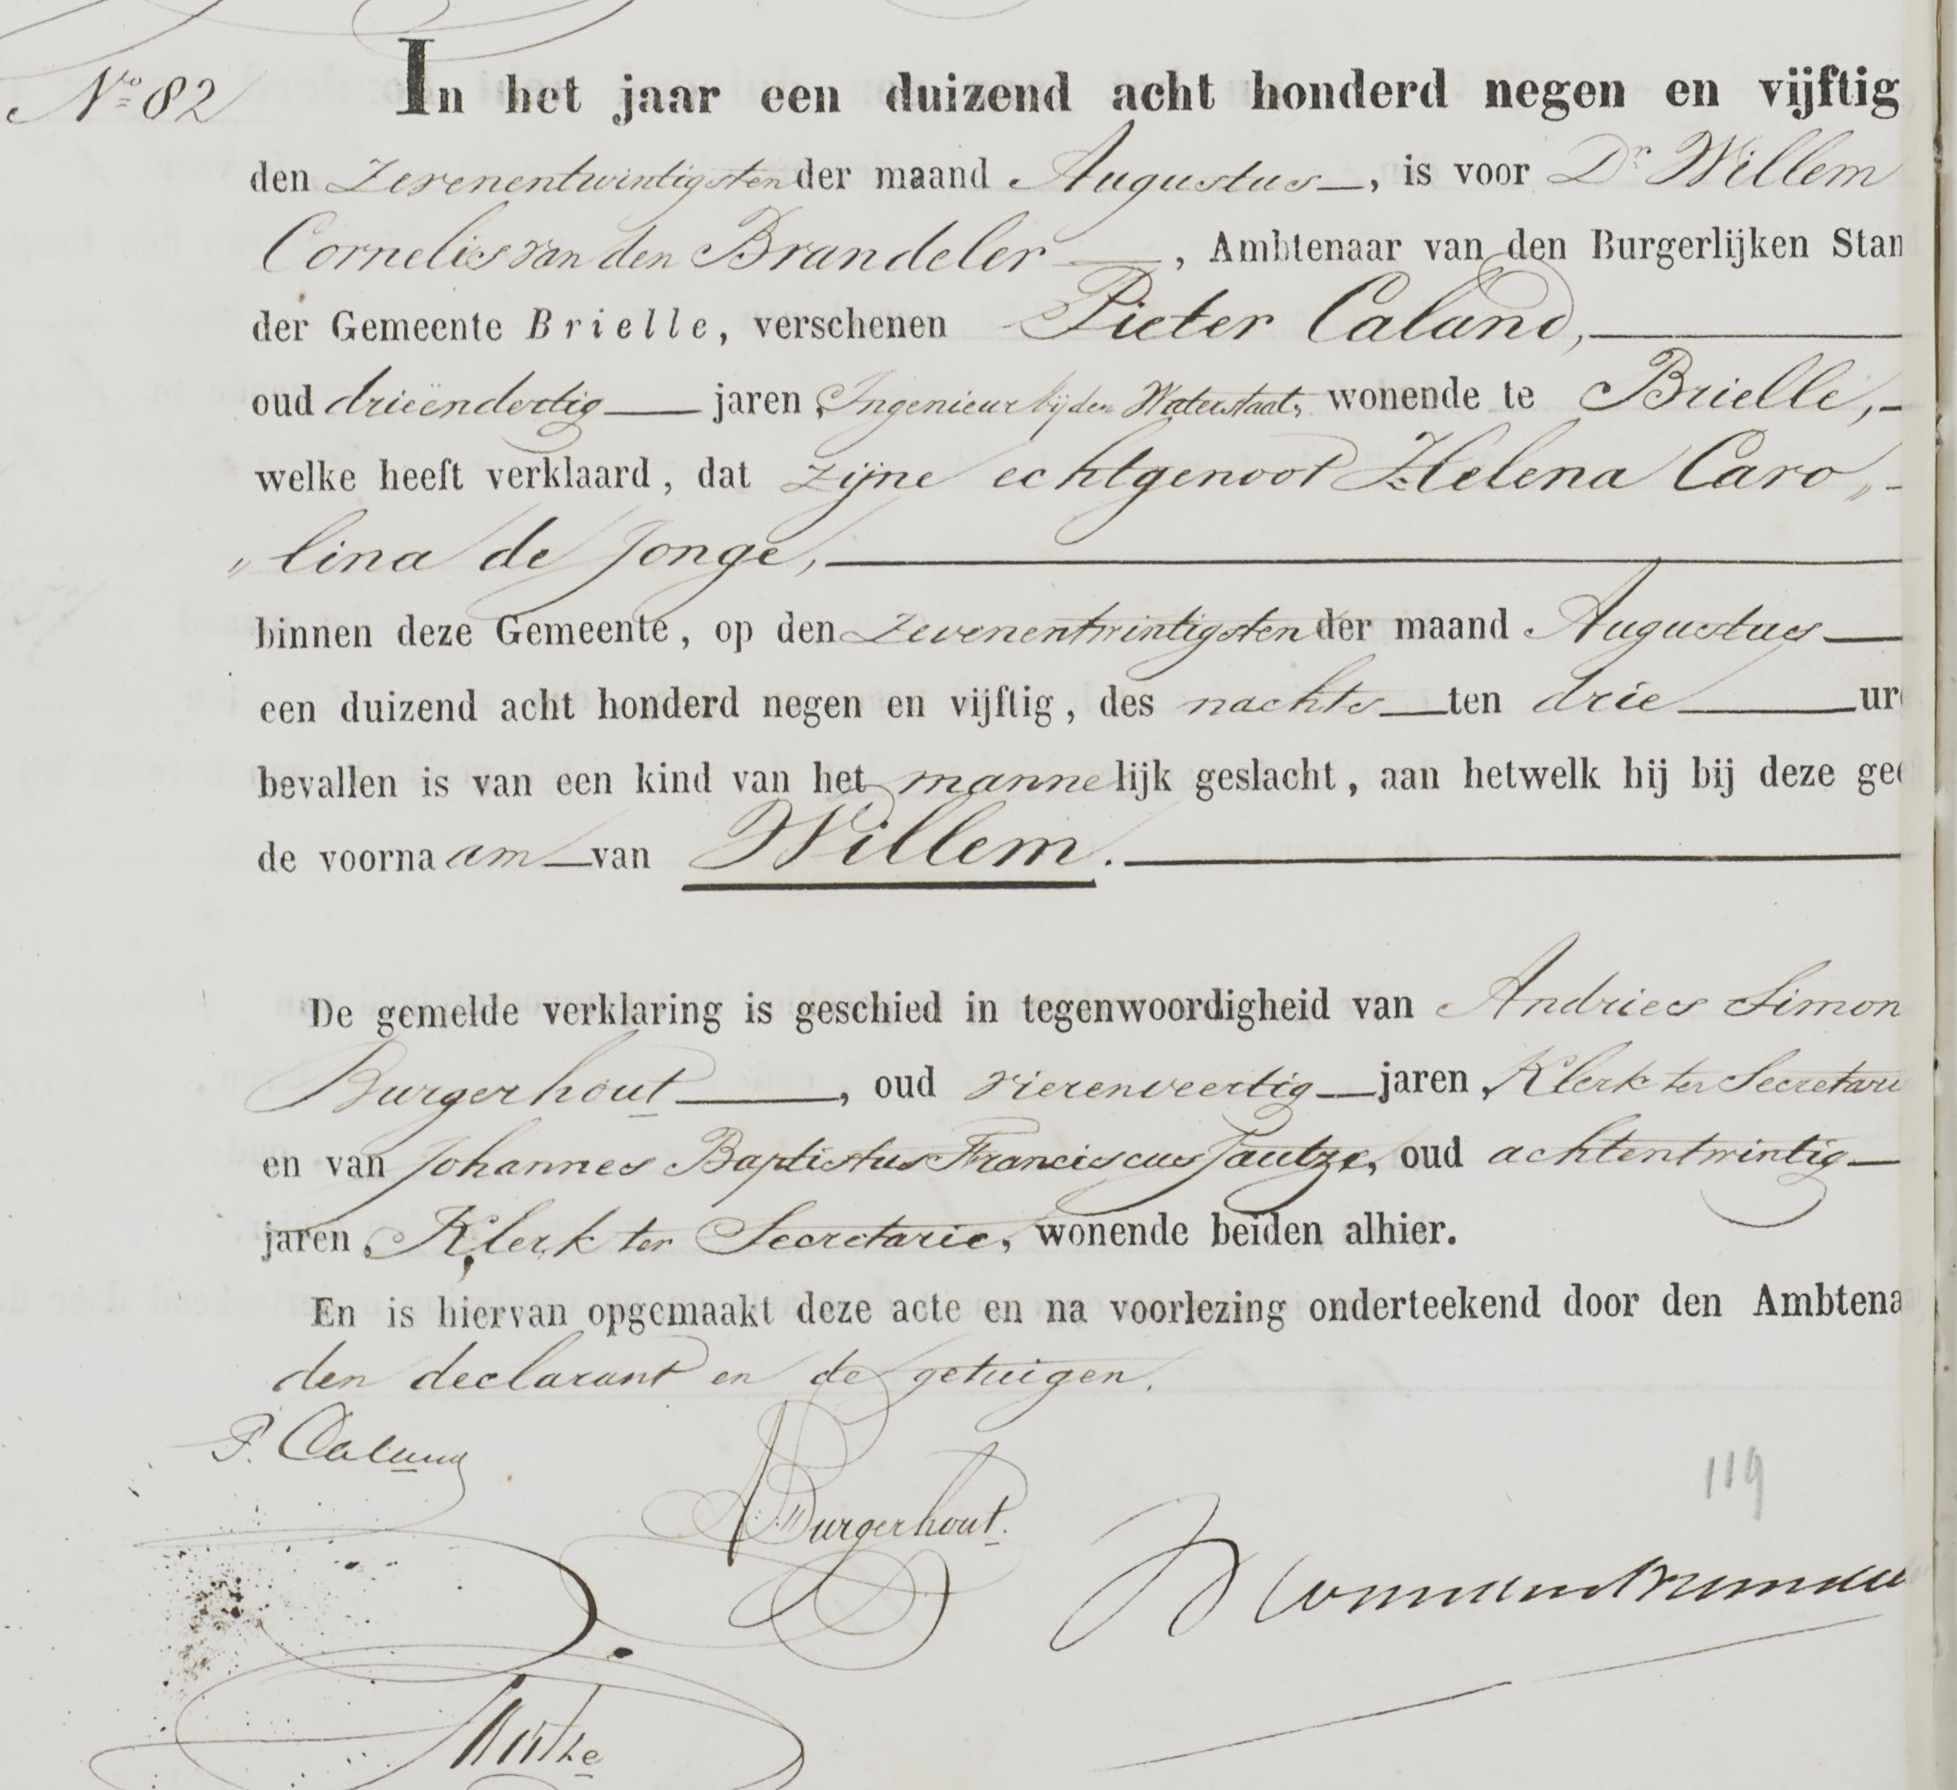 No 82
In het jaar een duizend acht honderd negen en vijftig
den zevenentwintigsten der maand Augustus, is voor Dr Willem
Cornelis van den Brandeler, Ambtenaar van den Burgerlijken Stan
der Gemeente Brielle, verschenen Pieter Caland,
oud drieëndertig jaren, Ingenieur bij den Waterstaat, wonende te Brielle,
welke heeft verklaard, dat zijne echtgenoot Helena Caro„
„lina de Jonge,
binnen deze Gemeente, op den zevenentwintigsten der maand Augustus
een duizend acht honderd negen en vijftig, des nachts ten drie ure
bevallen is van een kind van het mannelijk geslacht, aan hetwelk hij bij deze gee
de voornaam van Willem.
De gemelde verklaring is geschied in tegenwoordigheid van Andries Simon
Burgerhout, oud vierenveertig jaren, Klerk ter Secretari
en van Johannes Baptistus Franciscus Jautze, oud achtentwintig
jaren, Klerk ter Secretarie, wonende beiden alhier.
En is hiervan opgemaakt deze acte en na voorlezing onderteekend door den Ambtena
den declarant en de getuigen.
P. Caland
Burgerhout.
119